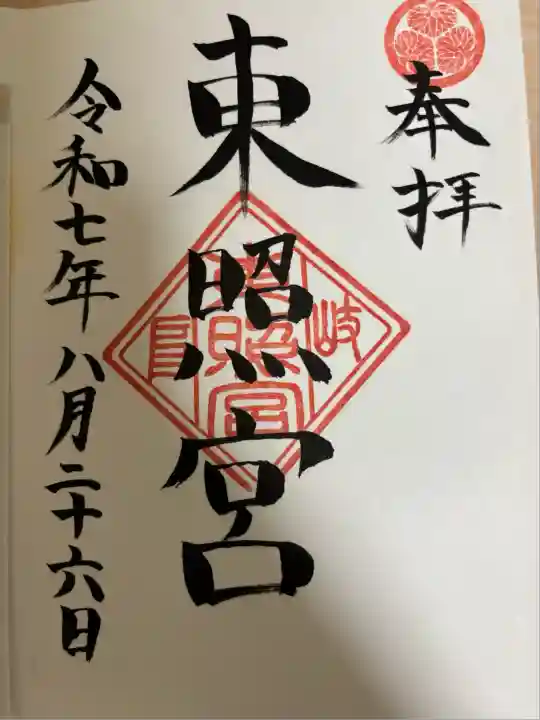 奉拝
東照宮
岐
長
東照宮
令和七年八月二十六日